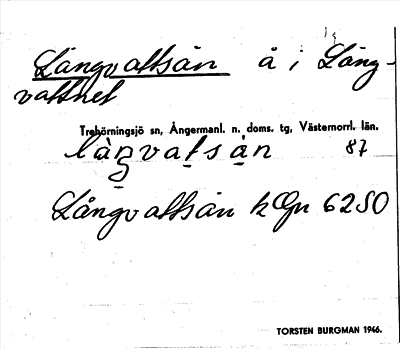 Långvattsån å i Lång-
vattnet
Trehörningsjö sn, Ångermanl. n. doms. tg, Västernorrl. län.
làŋvatsán 87
Långvattsån kGn 6250
TORSTEN BURGMAN 1946.